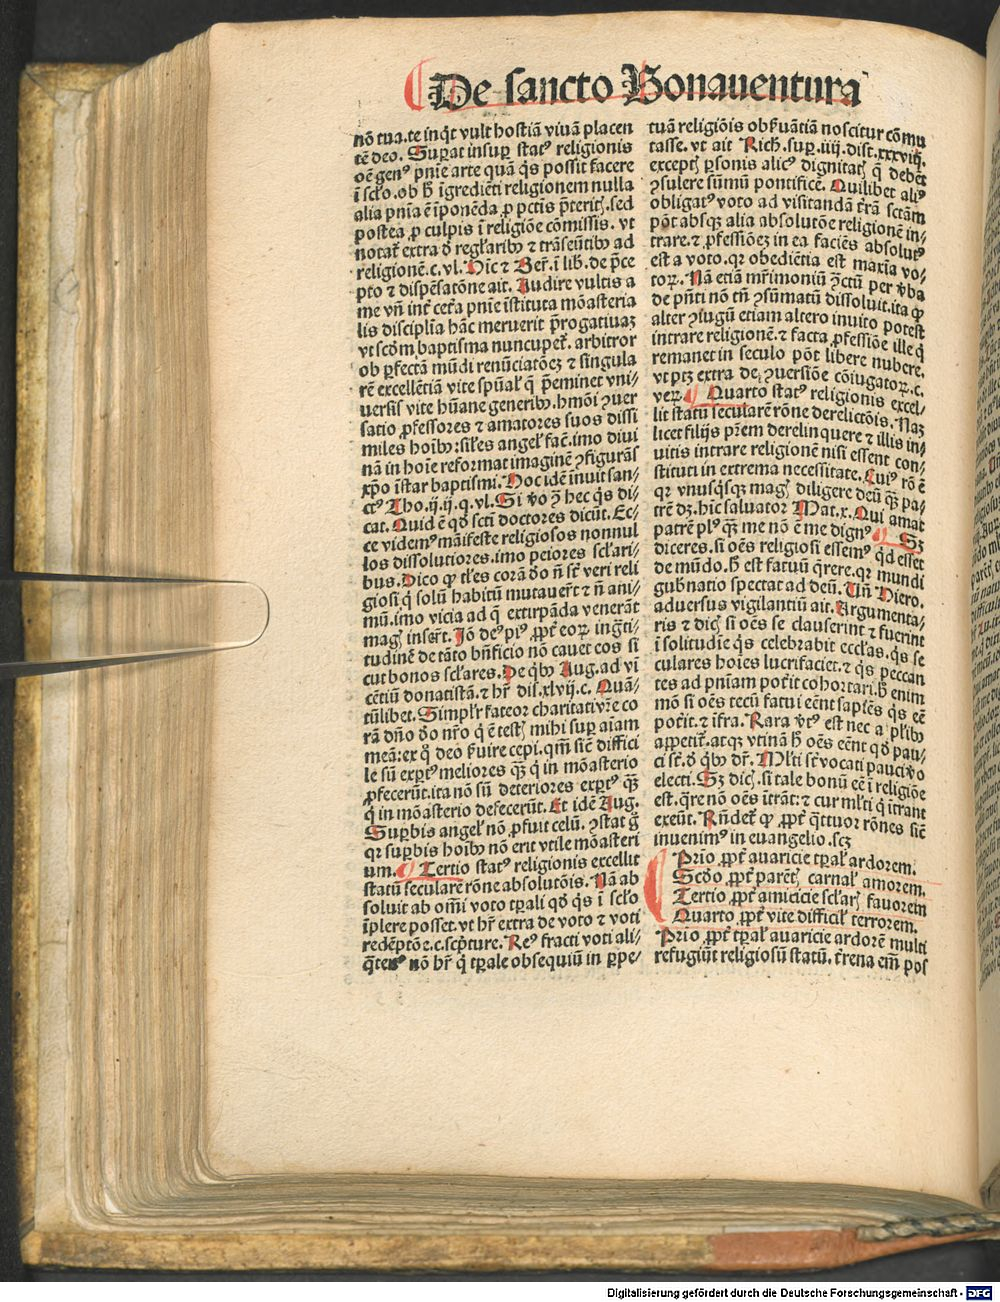 De sancto Bonauentura
nō tua. te inqͥt vult hostiā viuā placen
tē deo. Suꝑat insuꝑ statꝰ religionis
oēm genꝰ pn̄ie arte quā qͥs possit facere
ī sclo. ob ħ īgrediēti religionem nulla
alia pnia ē īponēda ꝓ pctīs p̄teritꝭ. sed
postea ꝓ culpis ī religiōe cōmissis. vt
notat̉ extra d̓ regl̓aribꝰ ⁊ trāseūtibꝰ ad
religionē. c. vl. Hic ⁊ Ber̉. ī lib. de p̄ce
pto ⁊ dispēsatōne ait. Audire vultis a
me vn̄ int̉ cet̉a pnie īstituta mōasteria
lis disciplīa hāc meruerit p̄rogatiuaꝫ
vt scd̓m baptisma nuncupet̉. arbitror
ob ꝑfectā mūdi renūciatōeꝫ ⁊ singula
rē excellētiā vite spūal̓ q̄ p̄eminet vni/
uersis vite hūane generibꝰ. hmōi ꝯuer
satio ꝓfessores ⁊ amatores suos dissi
miles hoībꝰ: sil̓es angel̓ fac̄. imo diui
nā in hoīe reformat imaginē ꝯfigurās
xp̄o īstar baptismi. Hoc idē inuit san/
ctꝰ Tho. ij. ij. q. vl. Si v̓o ꝯ̄ hec qͥs di/
cat. Quid ē qd̓ sctī doctores dicūt. Ec/
ce videmꝰ māifeste religiosos nonnul
los dissolutiores. imo peiores scl̓ari/
bus. Dico ꝙ tl̓es corā d̓o nō st̉ veri reli
giosi. qͥ solū habitū mutauer̉t ⁊ n̄ ani/
mū. imo vicia ad q̄ extirpāda venerāt
magꝭ inser̉t. Iō deꝰ piꝰ ꝓpt̉ eoꝝ īgͣti/
tudinē de tāto bn̄ficio nō cauet eos si
cut bonos scl̓ares. De qͥbꝰ Aug. ad vī
cētiū donatistā. ⁊ hr̉ dis. xlvij. c. Quā/
tūlibet. Simpl̓r fateor charitati vr̄e co
rā dn̄o d̓o nr̄o qͥ ē testꝭ mihi suꝑ aīam
meā: ex qͦ deo s̉uire cepi. qm̄ sic̄ diffici
le sū exꝑtꝰ meliores qͣꝫ qͥ in mōasterio
ꝓfecerūt. ita nō sū deteriores exꝑtꝰ qͣꝫ
qͥ in mōasterio defecerūt. Et idē Aug.
Suꝑbis angel̓ nō ꝓfuit celū. ꝯstat g̓
qꝛ suꝑbis hoībꝰ nō erit vtile mōasteri
um. ¶ Tertio statꝰ religionis excellit
statū seculare rōne absolutōis. Nā ab
soluit ab omī voto tꝑali qd̓ qͥs ī sclo
īplere posset. vt hr̉ extra de voto ⁊ voti
redēptōe. c. scpture. Reꝰ fracti voti ali/
qͣtenꝰ nō hr̉ qͥ tꝑale obsequiū in ꝑpe/
tuā religiōis obs̉uātiā noscitur cōmu
tasse. vt ait Rich. suꝑ. iiij. dist. xxxviij.
exceptꝭ ꝑsonis alicꝰ dignitatꝭ q̄ debēt
ꝯsulere sūmū pontificē. Quilibet aliꝰ
obligatꝰ voto ad visitandā t̉rā sctām
pōt absqꝫ alia absolutōe religionē in/
trare. ⁊ ꝓfessiōeꝫ in ea faciēs absolutꝰ
est a voto. qꝛ obediētia est maxīa vo/
toꝝ. Nā etiā mr̄imoniū ꝯctū per v̓ba
de pn̄ti nō tn̄ ꝯsūmatū dissoluit. ita ꝙ
alter ꝯiugū etiam altero inuito potest
intrare religionē. ⁊ facta ꝓfessiōe ille qͥ
remanet in seculo pōt libere nubere.
vt ptꝫ extra de ꝯuersiōe cōiugatoꝝ. c.
veꝝ. ¶ Quarto statꝰ religionis excel/
lit statū secularē rōne derelictōis. Naꝫ
licet filijs pr̄em derelinquere ⁊ illis in/
uitis intrare religionē nisi essent con/
stituti in extrema necessitate. Cuiꝰ rō ē
qꝛ vnusqͥsqꝫ magꝭ diligere deū qͣꝫ pa/
trē dꝫ. hic saluator Mat. x. Qui amat
patrē plꝰ qͣꝫ me nō ē me dignꝰ. ¶ Sꝫ
diceres. si oēs religiosi essemꝰ qͥd esset
de mūdo. ħ est fatuū qͣ̄rere. qꝛ mundi
gub̓natio spectat ad deū. Vn̄ Hiero.
aduersus vigilantiū ait. Argumenta/
ris ⁊ dicꝭ si oēs se clauserint ⁊ fuerint
ī solitudīe qͥs celebrabit eccl̓as. qͥs se
culares hoīes lucrifaciet. ⁊ qͥs peccan
tes ad pn̄iam pot̉it cohortari. ħ enim
mō si oēs tecū fatui eēnt sapīes qͥs eē
pot̉it. ⁊ īfra. Rara v̓tꝰ est nec a pl̓ibꝰ
appetit̉. atqꝫ vtinā ħ oēs eēnt qd̓ pau/
ci st̉. d̓ qͥbꝰ dr̉. Ml̓ti st̉ vocati pauci v̓o
electi. Sꝫ dicꝭ. si tale bonū eē ī religiōe
est. qͣ̄re nō oēs ītrāt: ⁊ cur ml̓ti qͥ ītrant
exeūt. Rn̄det̉ ꝙ ꝓpt̉ qͣttuor rōnes sic̄
inuenimꝰ in euangelio. scꝫ
Prīo ꝓpt̉ auaricie tꝑal̓ ardorem.
Scd̓o ꝓpt̉ parētꝭ carnal̓ amorem.
Tertio ꝓpt̉ amicicie scl̓arꝭ fauorem
Quarto ꝓpt̉ vite difficil̓ terrorem.
Prīo ꝓpt̉ tꝑal̓ auaricie ardorē multi
refugiūt religiosū statū. t̉rena em̄ pos
Digitalisierung gefördert durch die Deutsche Forschungsgemeinschaft - DFG